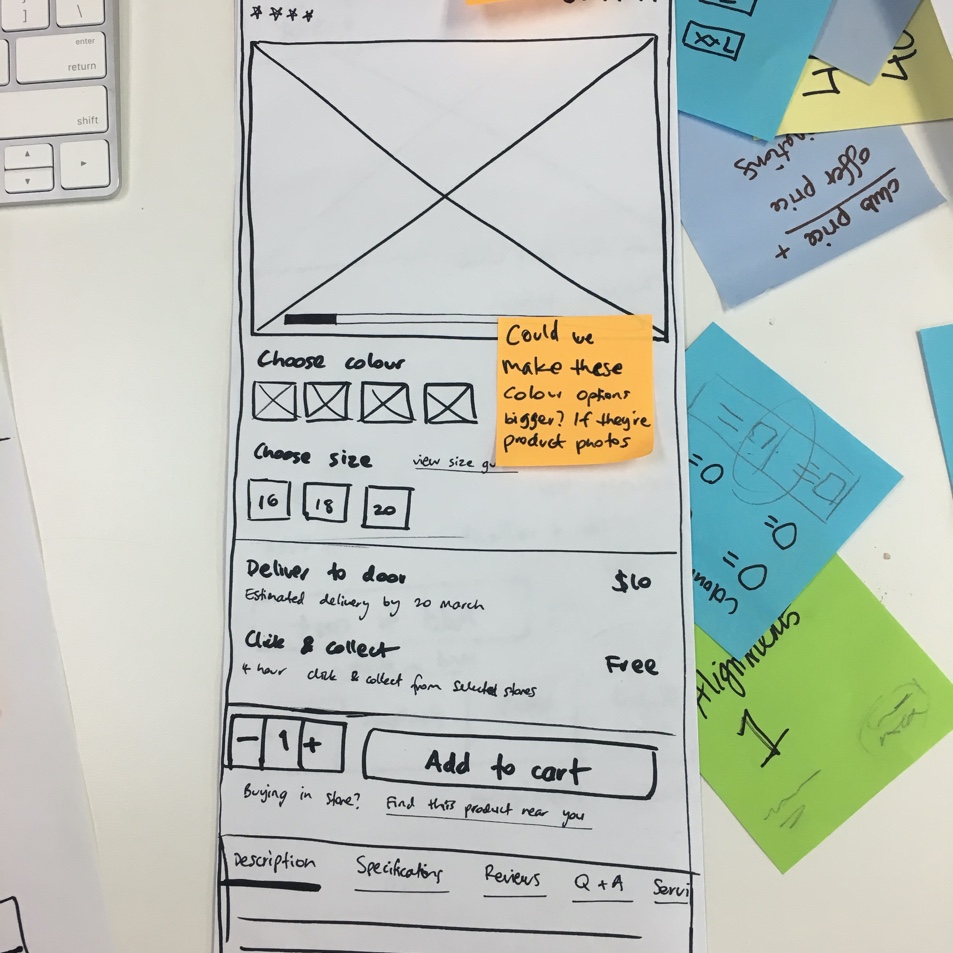 enter
return
shift
Choose colour
Could we
make these
colour options
bigger? If they're
product photos
Choose size
view size gu
16
18
20
Deliver to door
$10
Estimated delivery by 20 March
Click & collect
Free
4 hour click & collect from selected stores
- 1 +
Add to cart
Buying in store? Find this product near you
Description
Specifications
Reviews
Q + A
Servi
club price +
offer price
Alignments
1